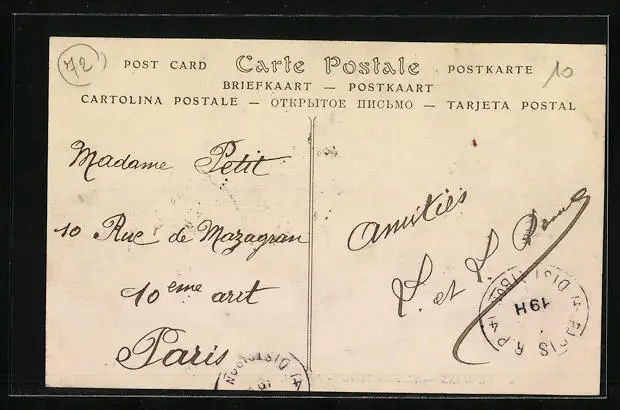 72
POST CARD Carte Postale POSTKARTE
10
BRIEFKAART — POSTKAART
CARTOLINA POSTALE — ОТКРЫТОЕ ПИСЬМО — TARJETA POSTAL
Madame Petit
10 Rue de Mazagran
10eme arrt
Paris
Amitiés
et
DISTRIBUTION
19H
DISTRIBUTION